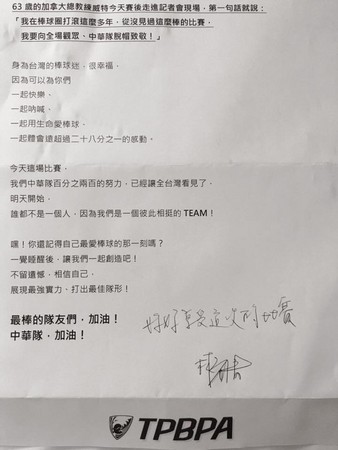 63 歲的加拿大總教練威特今天賽後走進記者會現場，第一句話就說：
「我在棒球圈打滾這麼多年，從沒見過這麼棒的比賽，
我要向全場觀眾、中華隊脫帽致敬！」
身為台灣的棒球迷，很幸福，
因為可以為你們
一起快樂、
一起吶喊、
一起用生命愛棒球，
一起體會遠超過二十八分之一的感動。
今天這場比賽，
我們中華隊百分之兩百的努力，已經讓全台灣看見了，
明天開始，
誰都不是一個人，因為我們是一個彼此相挺的 TEAM！
嘿！你還記得自己最愛棒球的那一刻嗎？
一覺睡醒後，讓我們一起創造吧！
不留遺憾、相信自己，
展現最強實力、打出最佳隊形！
最棒的隊友們，加油！
中華隊，加油！
好好享受這次的比賽
TPBPA